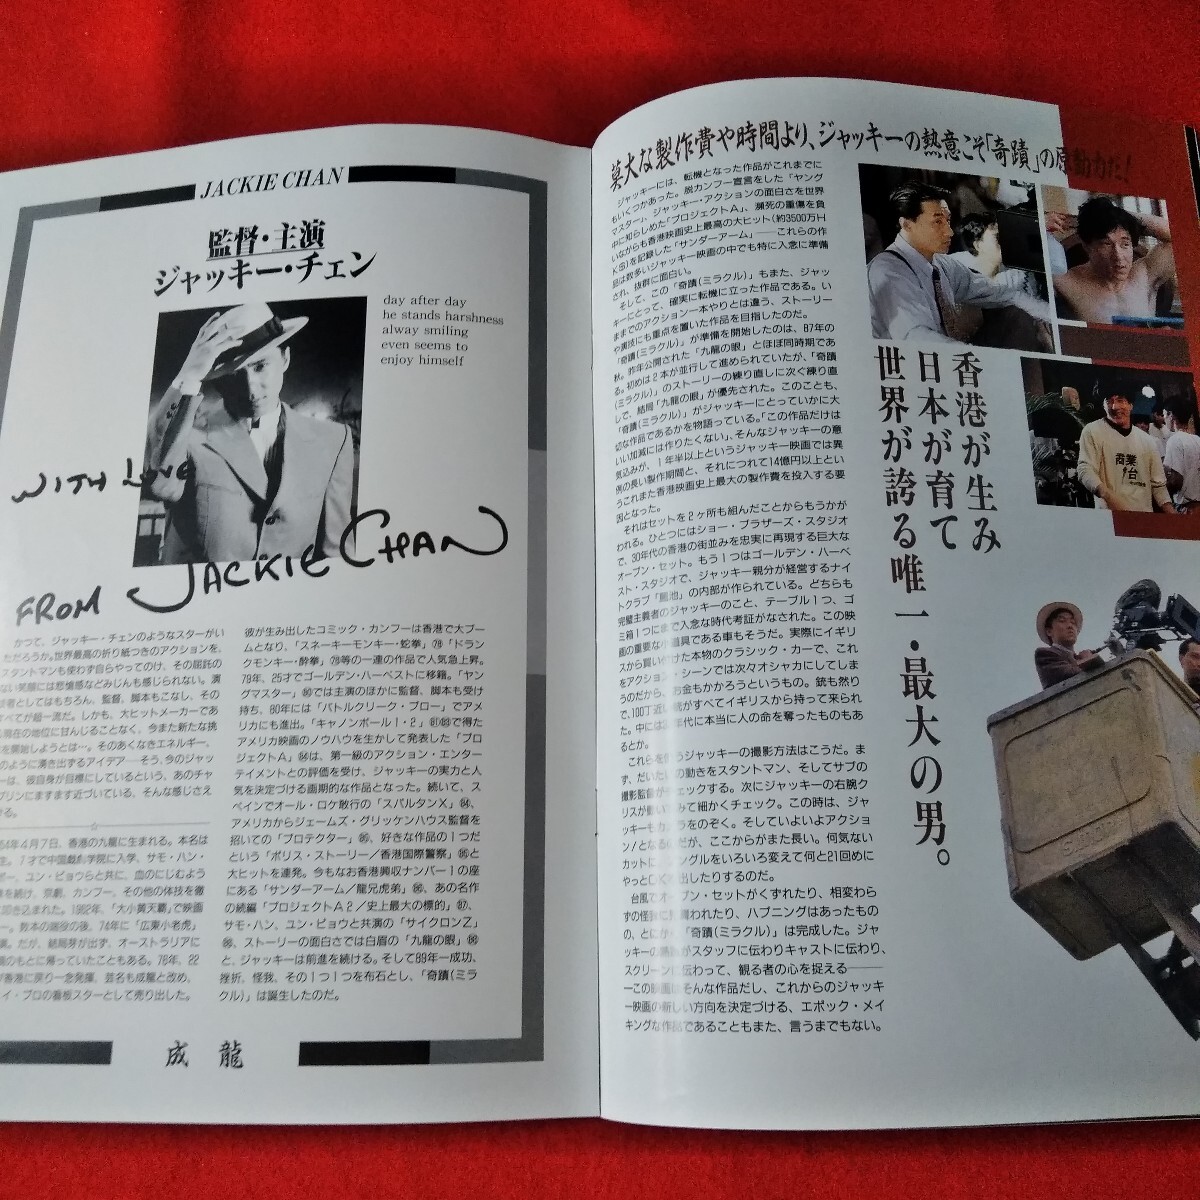 JACKIE CHAN
監督・主演
ジャッキー・チェン
day after day
he stands harshness
alway smiling
even seems to
enjoy himself
WITH LOVE
FROM JACKIE CHAN
かつて、ジャッキー・チェンのようなスターがい
ただろうか。世界最高の折り紙つきのアクションを、
スタントマンも使わず自らやってのけ、その屈託の
ない笑顔には悲愴感などみじんも感じられない。演
者としてはもちろん、監督、脚本もこなし、その
べてが超一流だ。しかも、大ヒットメーカーであ
現在の地位に甘んじることなく、今また新たな挑
を開始しようとは…。そのあくなきエネルギー、
のように湧き出するアイデア──そう、今のジャッ
ーは、彼自身が目標にしているという、あのチャ
プリンにますます近づいている、そんな感じさえ
る。
54年4月7日、香港の九龍に生まれる。本名は
生。7才で中国戯劇学院に入学、サモ・ハン・
ポー、ユン・ピョウらと共に、血のにじむよう
を続け、京劇、カンフー、その他の体技を徹
叩き込まれた。1962年、「大小黄天覇」で映画
ー。数本の端役の後、74年に「広東小老虎」
演。だが、結局芽が出ず、オーストラリアに
のもとに帰っていたこともある。76年、22
香港に戻り一念発揮、芸名も成龍と改め、
イ・プロの看板スターとして売り出した。
彼が生み出したコミック・カンフーは香港で大ブー
ムとなり、「スネーキーモンキー・蛇拳」㊆「ドラン
クモンキー・酔拳」㊆等の一連の作品で人気急上昇。
79年、25才でゴールデン・ハーベストに移籍。「ヤン
グマスター」㊇では主演のほかに監督、脚本も受け
持ち、80年には「バトルクリーク・ブロー」でアメ
リカにも進出。「キャノンボール1・2」で得た
アメリカ映画のノウハウを生かして発表した「プロ
ジェクトA」は、第一級のアクション・エンター
テイメントとの評価を受け、ジャッキーの実力と人
気を決定づける画期的な作品となった。続いて、ス
ペインでオール・ロケ敢行の「スパルタンX」、
アメリカからジェームズ・グリッケンハウス監督を
招いての「プロテクター」、好きな作品の1つだ
という「ポリス・ストーリー/香港国際警察」と
大ヒットを連発。今もなお香港興収ナンバー1の座
にある「サンダーアーム/龍兄虎弟」、あの名作
の続編「プロジェクトA2/史上最大の標的」、
サモ・ハン、ユン・ピョウと共演の「サイクロンZ」
、ストーリーの面白さでは白眉の「九龍の眼」
と、ジャッキーは前進を続ける。そして89年―成功、
挫折、怪我、その1つ1つを布石とし、「奇蹟(ミラ
クル)」は誕生したのだ。
成龍
莫大な製作費や時間より、ジャッキーの熱意こそ「奇蹟」の原動力だ!
ジャッキーには、転機となった作品がこれまでに
もいくつかあった。脱カンフー宣言をした「ヤング
マスター」、ジャッキー・アクションの面白さを世界
中に知らしめた「プロジェクトA」、瀕死の重傷を負
いながらも香港映画史上最高の大ヒット(約3500万H
K$)を記録した「サンダーアーム」──これらの作
品は数多いジャッキー映画の中でも特に入念に準備
され、抜群に面白い。
そして、この「奇蹟(ミラクル)」もまた、ジャッ
キーにとって、確実に転機に立った作品である。い
ままでのアクション一本やりとは違う、ストーリー
や演技にも重点を置いた作品を目指したのだ。
「奇蹟(ミラクル)」が準備を開始したのは、87年の
秋。昨年公開された「九龍の眼」とほぼ同時期であ
る。初めは2本が並行して進められていたが、「奇蹟
(ミラクル)」のストーリーの練り直しに次ぐ練り直
しで、結局「九龍の眼」が優先された。このことも、
「奇蹟(ミラクル)」がジャッキーにとっていかに大
切な作品であるかを物語っている。「この作品だけは
いい加減には作りたくない」、そんなジャッキーの意
気込みが、1年半以上というジャッキー映画では異
例の長い製作期間と、それにつれて14億円以上とい
うこれまた香港映画史上最大の製作費を投入する要
因となった。
それはセットを2ヶ所も組んだことからもうかが
われる。ひとつにはショー・ブラザーズ・スタジオ
で、30年代の香港の街並みを忠実に再現する巨大な
オープン・セット。もう1つはゴールデン・ハーベ
スト・スタジオで、ジャッキー親分が経営するナイ
トクラブ「麗池」の内部が作られている。どちらも
完璧主義者のジャッキーのこと、テーブル1つ、ゴ
ミ箱1つにまで入念な時代考証がなされた。この映
画の重要な小道具である車もそうだ。実際にイギリ
スから買い付けた本物のクラシック・カーで、これ
をアクション・シーンでは次々オシャカにしてしま
うのだから、お金もかかろうというもの。銃も然り
で、100丁近い銃がすべてイギリスから持って来られ
た。中には年代に本当に人の命を奪ったものもあ
るとか。
これらを使うジャッキーの撮影方法はこうだ。ま
ず、だいたいの動きをスタントマン、そしてサブの
撮影監督がチェックする。次にジャッキーの右腕ク
リスが動いてみて細かくチェック。この時は、ジャ
ッキーもカメラをのぞく。そしていよいよアクショ
ン!となるのだが、ここからがまた長い。何気ない
カットにアングルをいろいろ変えて何と21回めに
やっとOKを出したりするのだ。
台風でオープン・セットがくずれたり、相変わら
ずの怪我に見舞われたり、ハプニングはあったもの
の、とにかく「奇蹟(ミラクル)」は完成した。ジャ
ッキーの熱意がスタッフに伝わりキャストに伝わり、
スクリーンに伝わって、観る者の心を捉える──
―この映画はそんな作品だし、これからのジャッキ
ー映画の新しい方向を決定づける、エポック・メイ
キングな作品であることもまた、言うまでもない。
香港が生み
日本が育て
世界が誇る唯一・最大の男。
商業
台